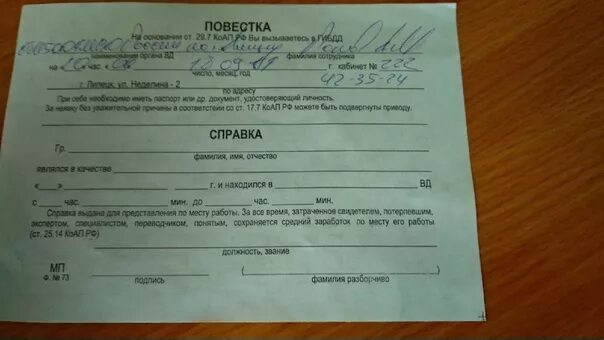 ПОВЕСТКА
На основании ст. 29.7 КоАП РФ Вы вызываетесь в ГИБДД
России по
наименовании органа ВД фамилия сотрудника
на 20 час. 00 г. кабинет № 222
число, месяц, год 42-35-24
г. Липецк, ул. Неделина - 2
по адресу
При себе необходимо иметь паспорт или др. документ, удостоверяющий личность.
За неявку без уважительной причины в соответствии со ст. 17.7 КоАП РФ можете быть подвергнуты приводу.
СПРАВКА
Гр.
фамилия, имя, отчество
являлся в качестве
«__» г. и находился в ВД
с час. мин. до час. мин.
Справка выдана для представления по месту работы. За все время, затраченное свидетелем, потерпевшим,
экспертом, специалистом, переводчиком, понятым, сохраняется средний заработок по месту его работы
(ст. 25.14 КоАП РФ)
должность, звание
МП ( )
Ф. № 73 подпись фамилия разборчиво